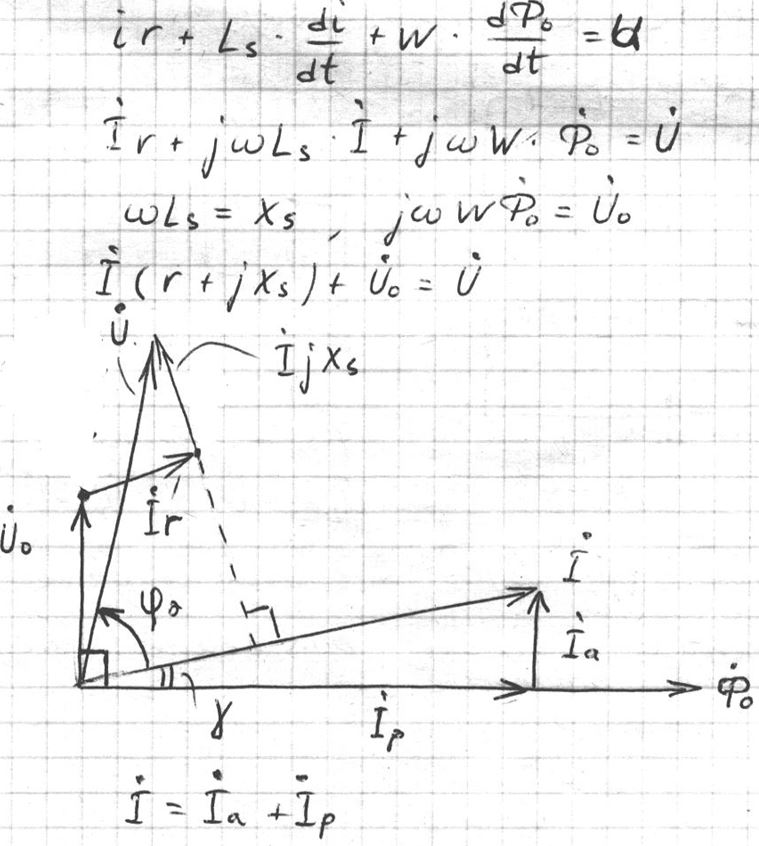 ir + Ls · di/dt + W · dΦ₀/dt = u
İr + jωLs · İ + jωW · Φ̇₀ = U̇
ωLs = Xs , jωWΦ̇₀ = U̇₀
İ(r + jXs) + U̇₀ = U̇
U̇
İjXs
U̇₀
İr
φ₀
İ
İa
γ
İp
Φ̇₀
İ = İa + İp